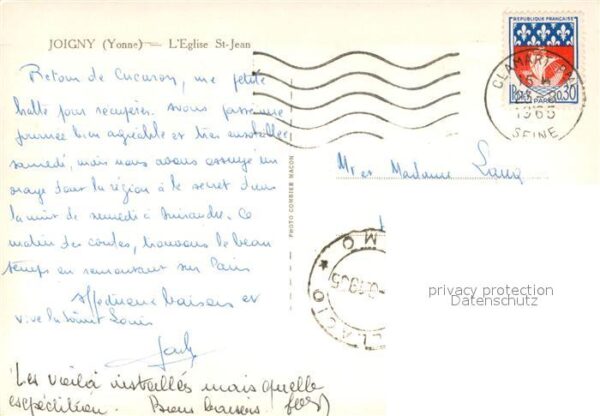 JOIGNY (Yonne) — L'Eglise St-Jean
REPUBLIQUE FRANÇAISE
0,30
PARIS
CLAMART
1965
SEINE
Retour de Cucuron, une petite
halte pour récupérer. Avons passé une
journée bien agréable et très ensoleillée
samedi, mais nous avons essuyé un
orage dans la région
la nuit de samedi à dimanche. Ce
matin des cordes, trouvons le beau
temps en remontant sur Paris
Affectueux baisers et
vive la Saint Louis
Mr et Madame
PHOTO COMBIER MACON
privacy protection
Datenschutz
Les voilà installés mais quelle
expédition. Bons baisers.